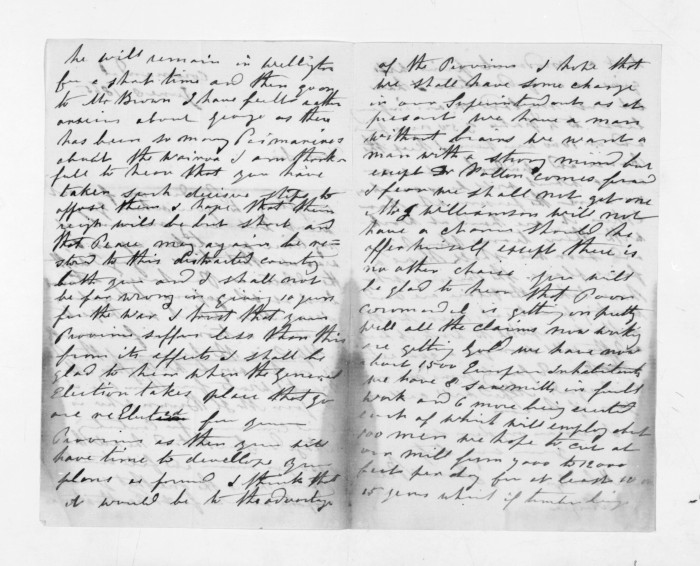 he will remain in wellington
for a short time and then go on
to Mr Brown I have felt rather
anxious about george as there
has been so many Paimarires
about the Wairoa I am thank
full to hear that you have
taken such decisive steps to
oppose them I hope that their
reign will be but short and
that Peace may again be re=
stored to this distracted country
both you and I shall not
be far wrong in giving 10 years
for the war I trust that your
Province suffers less than this
from its affects I shall be
glad to hear when the general
Election takes place that you
are reElected for your
Province as then you will
have time to devellope your
plans as found I think that
it would be to the advantage
of the Province I hope that
we shall have some change
in our Superintendents as at
present we have a man
without brains we want a
man with a strong mind but
except Dr Pollen comes forward
I fear we shall not get one
Williamson will not
have a chance should he
offer himself except there is
no other choice you will
be glad to hear that Poor
coromandel is getting on pretty
well all the claims now working
are getting Gold we have now
about 1500 European Inhabitants
we have 8 sawmills in full
work and 6 more being erected
each of which will employ about
100 men we hope to cut at
our mill from 7000 to 10000
feet per day for at least 10 or
15 years which if timber